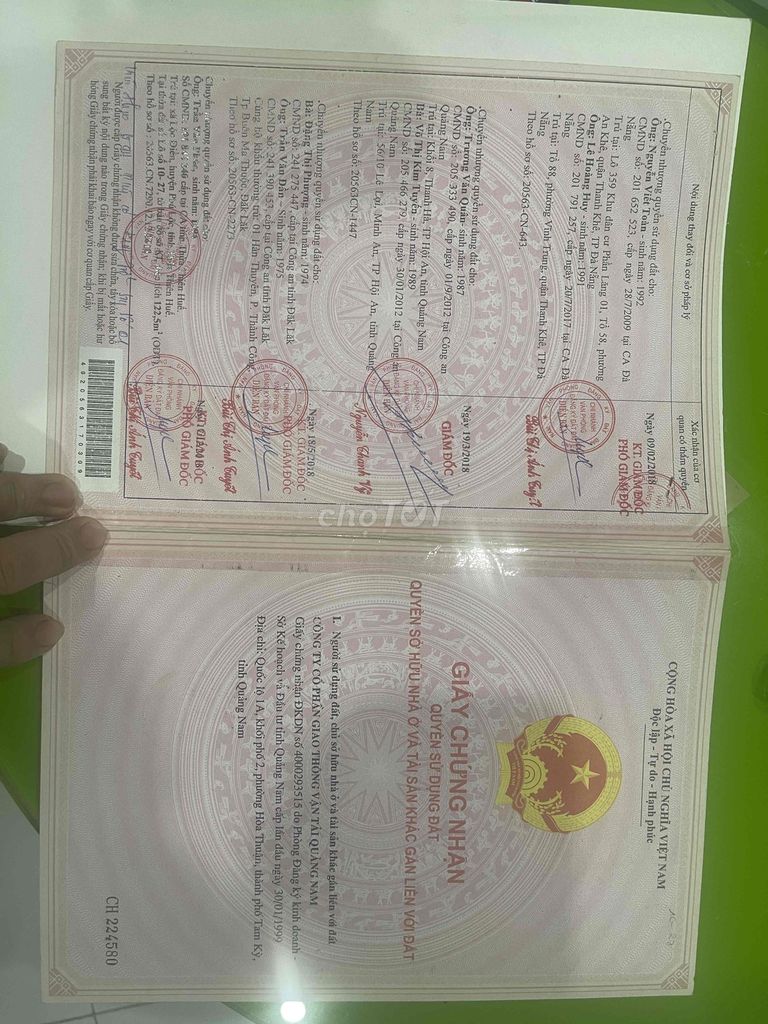 CỘNG HÒA XÃ HỘI CHỦ NGHĨA VIỆT NAM
Độc lập - Tự do - Hạnh phúc
GIẤY CHỨNG NHẬN
QUYỀN SỬ DỤNG ĐẤT
QUYỀN SỞ HỮU NHÀ Ở VÀ TÀI SẢN KHÁC GẮN LIỀN VỚI ĐẤT
I. Người sử dụng đất, chủ sở hữu nhà ở và tài sản khác gắn liền với đất
CÔNG TY CỔ PHẦN GIAO THÔNG VẬN TẢI QUẢNG NAM
Giấy chứng nhận ĐKDN số 4000293515 do Phòng Đăng ký kinh doanh -
Sở Kế hoạch và Đầu tư tỉnh Quảng Nam cấp lần đầu ngày 30/01/1999
Địa chỉ: Quốc lộ 1A, khối phố 2, phường Hòa Thuận, thành phố Tam Kỳ,
tỉnh Quảng Nam
CH 224580
Nội dung thay đổi và cơ sở pháp lý
Xác nhận của cơ
quan có thẩm quyền
Chuyển nhượng quyền sử dụng đất cho:
Ông: Nguyễn Viết Toàn - sinh năm: 1992
CMND số: 201 652 523, cấp ngày 28/7/2009 tại CA Đà
Nẵng
Trú tại: Lô 359 Khu dân cư Phần Lăng 01, Tổ 58, phường
An Khê, quận Thanh Khê, TP Đà Nẵng
Ông: Lê Hoàng Huy - sinh năm: 1991
CMND số: 201 791 257, cấp ngày 20/7/2017 tại CA Đà
Nẵng
Trú tại: Tổ 88, phường Vĩnh Trung, quận Thanh Khê, TP Đà
Nẵng
Theo hồ sơ số: 20563-CN-443.
Ngày 09/02/2018
KT. GIÁM ĐỐC
PHÓ GIÁM ĐỐC
Bùi Thị Ánh Tuyết
Chuyển nhượng quyền sử dụng đất cho:
Ông: Trương Văn Quân - sinh năm: 1987
CMND số: 205 333 490, cấp ngày 01/9/2012 tại Công an
Quảng Nam
Trú tại: Khối 8, Thanh Hà, TP Hội An, tỉnh Quảng Nam
Bà: Võ Thị Kim Tuyến - sinh năm: 1989
CMND số: 205 466 279, cấp ngày 30/01/2012 tại Công an
Quảng Nam
Trú tại: 56/10 Lê Lợi, Minh An, TP Hội An, tỉnh Quảng
Nam
Theo hồ sơ số: 20563-CN-1447
Ngày 19/3/2018
GIÁM ĐỐC
Nguyễn Thanh Vỹ
Chuyển nhượng quyền sử dụng đất cho:
Bà: Đặng Thị Phượng - sinh năm: 1974
CMND số: 241 275 447, cấp tại Công an tỉnh Đắk Lắk
Ông: Trần Văn Dân - sinh năm: 1975
CMND số: 241 390 453, cấp tại Công an tỉnh Đắk Lắk
Cùng hộ khẩu thường trú: 01 Hàn Thuyên, P. Thành Công,
Tp Buôn Ma Thuột, Đắk Lắk
Theo hồ sơ số: 20563-CN-2273
Ngày 18/5/2018
KT. GIÁM ĐỐC
PHÓ GIÁM ĐỐC
Bùi Thị Ánh Tuyết
Chuyển nhượng quyền sử dụng đất cho
Trú tại: xã Lộc Điền, huyện Phú Lộc, tỉnh Thừa Thiên Huế
KT. GIÁM ĐỐC
PHÓ GIÁM ĐỐC
Bùi Thị Ánh Tuyết
Người được cấp Giấy chứng nhận không được sửa chữa, tẩy xóa hoặc bổ
sung bất kỳ nội dung nào trong Giấy chứng nhận; khi bị mất hoặc hư
hỏng Giấy chứng nhận phải khai báo ngay với cơ quan cấp Giấy.
choTỐT